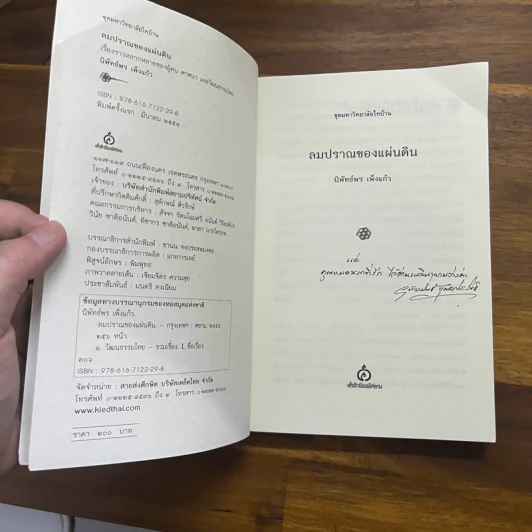 ชุดมหาวิทยาลัยไทบ้าน
ลมปราณของแผ่นดิน
เรื่องราวหลากหลายของผู้คน ศาสนา และวัฒนธรรมไทย
นิพัทธ์พร เพ็งแก้ว
ISBN : 978-616-7122-29-8
พิมพ์ครั้งแรก มีนาคม ๒๕๕๔
๑๑๗-๑๑๙ ถนนเฟื่องนคร เขตพระนคร กรุงเทพฯ ๑๐๒๐๐
โทรศัพท์ ๐-๒๒๒๕-๙๕๓๖ ถึง ๙ โทรสาร
เจ้าของ : บริษัทสำนักพิมพ์สยามปริทัศน์ จำกัด
ที่ปรึกษากิตติมศักดิ์ : สุลักษณ์ ศิวรักษ์
คณะกรรมการบริหาร : สัจจา รัตนโฉมศรี, อนันต์ วิริยะพินิจ
วินัย ชาติอนันต์, ทิชากร ชาติอนันต์,
บรรณาธิการสำนักพิมพ์ :
กองบรรณาธิการการผลิต :
พิสูจน์อักษร : พิมพุทธ
ภาพวาดลายเส้น : เจียมจิตร ความสุข
ประชาสัมพันธ์ : มนตรี คงเนียม
ข้อมูลทางบรรณานุกรมของหอสมุดแห่งชาติ
นิพัทธ์พร เพ็งแก้ว.
ลมปราณของแผ่นดิน. -- กรุงเทพฯ : ศยาม, ๒๕๕๔
๒๕๖ หน้า.
๑. วัฒนธรรมไทย -- รวมเรื่อง. I. ชื่อเรื่อง.
๓๐๖
ISBN : 978-616-7122-29-8
จัดจำหน่าย : สายส่งศึกษิต บริษัทเคล็ดไทย จำกัด
โทรศัพท์ ๐-๒๒๒๕-๙๕๓๖ ถึง ๙ โทรสาร
www.kledthai.com
ราคา ๒๐๐ บาท
ชุดมหาวิทยาลัยไทบ้าน
ลมปราณของแผ่นดิน
นิพัทธ์พร เพ็งแก้ว
แด่
สำนักพิมพ์ศยาม